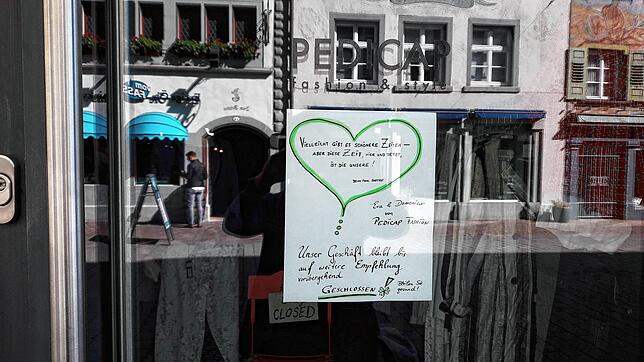 PEDICAP
fashion & style
VIELLEICHT GIBT ES SCHÖNERE ZEITEN –
ABER DIESE ZEIT, HIER UND JETZT,
IST DIE UNSERE!
JEAN PAUL SARTRE
Eva & Domenico
von
PEDICAP FASHION
Unser Geschäft bleibt bis
auf weitere Empfehlung
vorübergehend
GESCHLOSSEN!
Bleiben Sie
gesund!
CLOSED